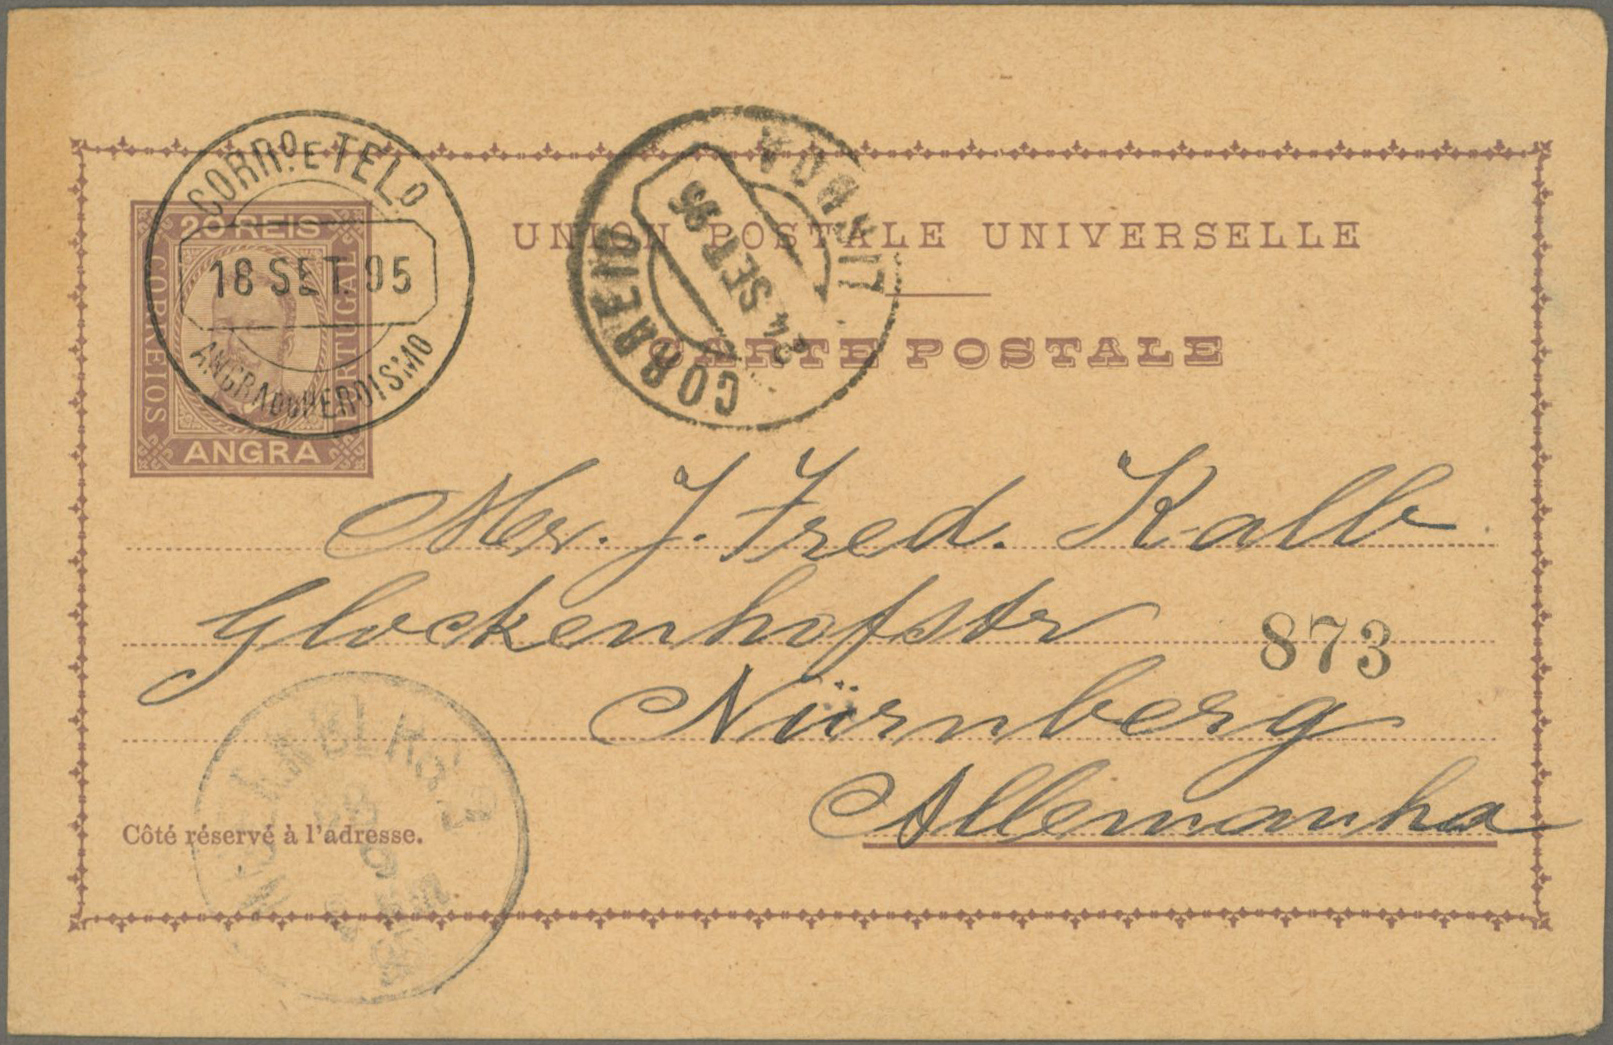 UNION POSTALE UNIVERSELLE
CARTE POSTALE
20 REIS
CORREIOS
PORTUGAL
ANGRA
CORRO. E TELO
18 SET. 95
ANGRA DO HEROISMO
CORREIO
24 SET 95
LISBOA
Mr. J. Fred. Kalb
Glockenhofstr
873
Nürnberg
Allemanha
Côté réservé à l'adresse.